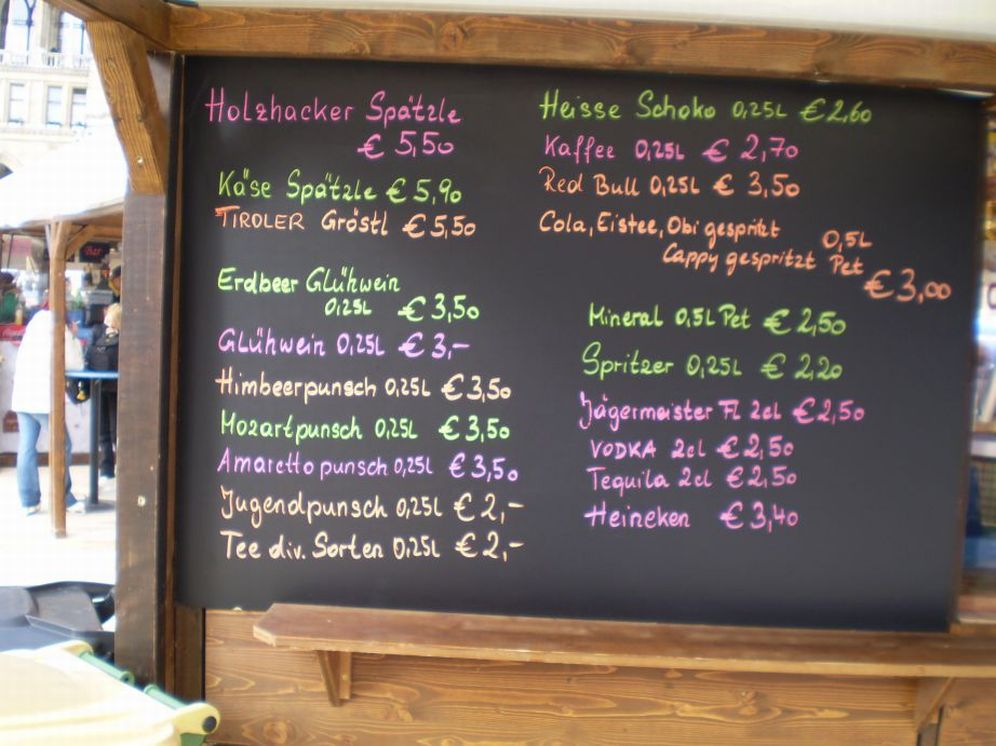 Holzhacker Spätzle
€ 5,50
Käse Spätzle € 5,90
TIROLER Gröstl € 5,50
Erdbeer Glühwein
0,25L € 3,50
Glühwein 0,25L € 3,-
Himbeerpunsch 0,25L € 3,50
Mozartpunsch 0,25L € 3,50
Amaretto punsch 0,25L € 3,50
Jugendpunsch 0,25L € 2,-
Tee div. Sorten 0,25L € 2,-
Heisse Schoko 0,25L € 2,60
Kaffee 0,25L € 2,70
Red Bull 0,25L € 3,50
Cola, Eistee, Obi gespritzt 0,5L
Cappy gespritzt Pet
€ 3,00
Mineral 0,5L Pet € 2,50
Spritzer 0,25L € 2,20
Jägermeister Fl 2cl € 2,50
VODKA 2cl € 2,50
Tequila 2cl € 2,50
Heineken € 3,40